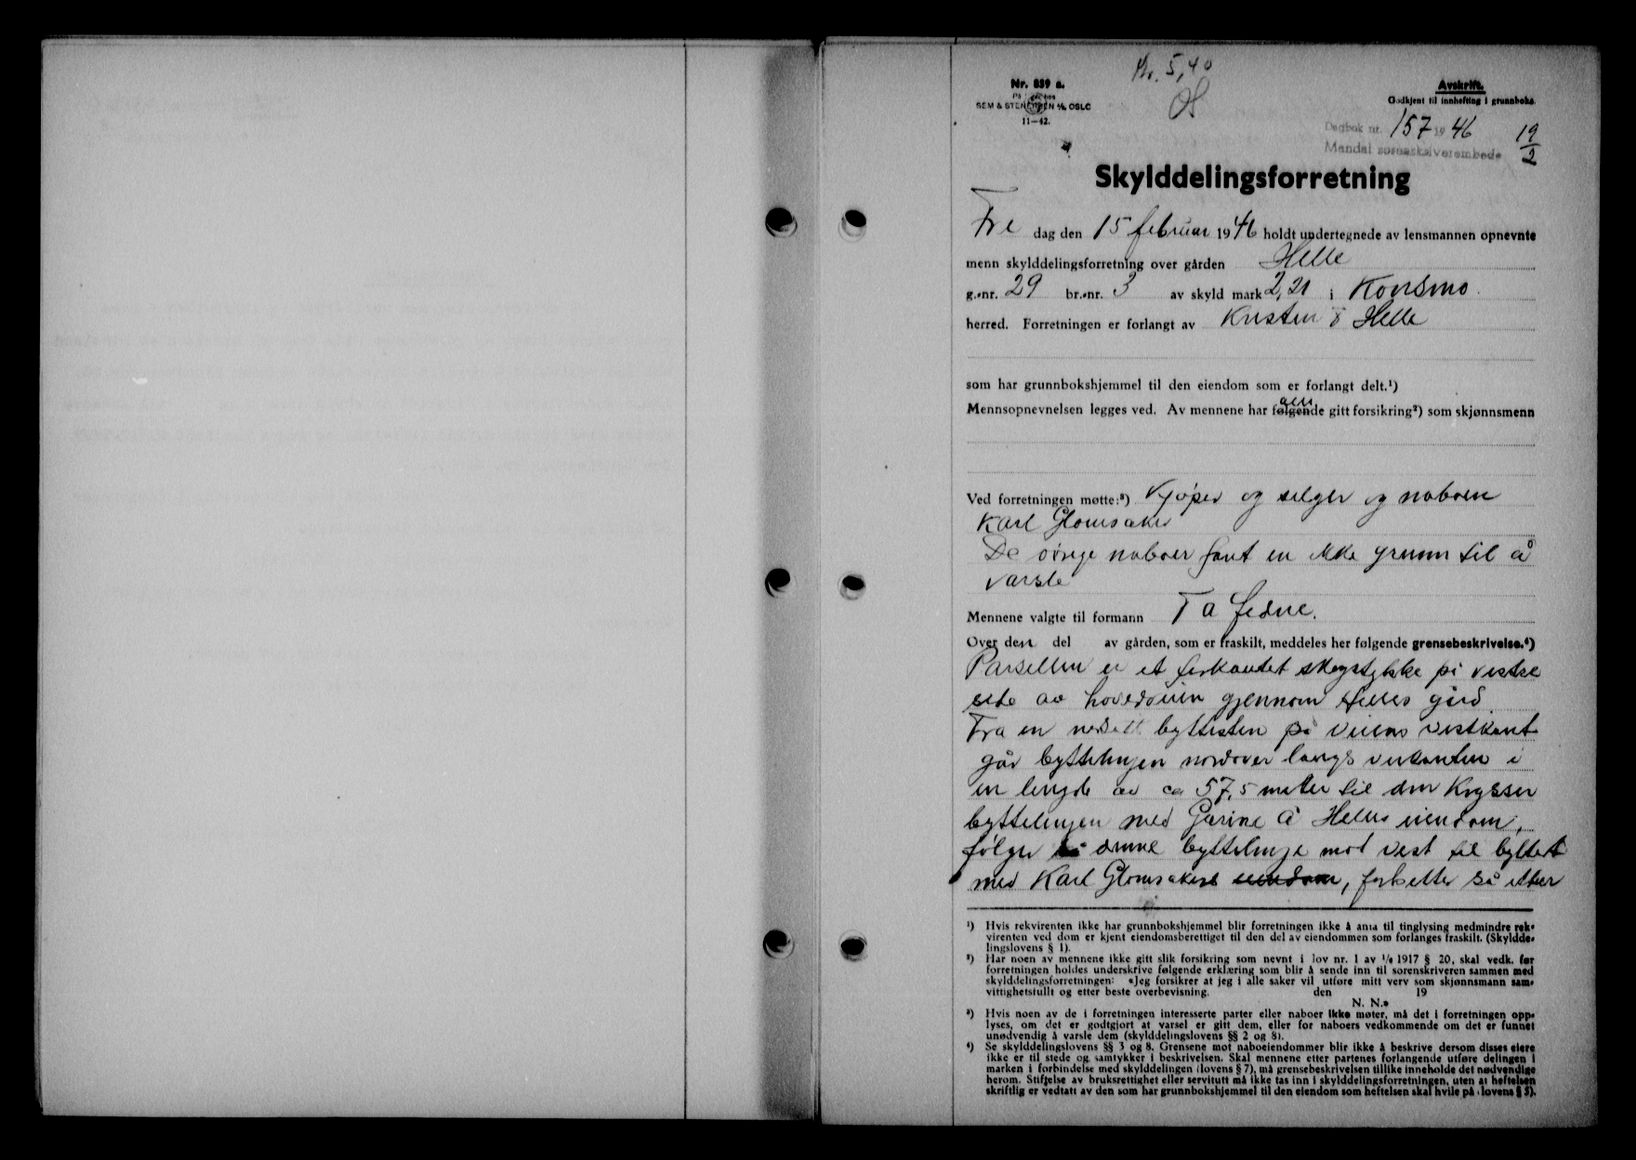 Kr. 5,40
Nr. 839 a.
SEM & STENERSEN A/S, OSLO
11-42.
Avskrift.
Godkjent til innhefting i grunnboka.
Dagbok nr. 157 1946 19/2
Mandal sorenskriverembede
Skylddelingsforretning
Fre dag den 15 februar 1946 holdt undertegnede av lensmannen opnevnte
menn skylddelingsforretning over gården Helle
g.-nr. 29 br.-nr. 3 av skyld mark 2,21 i Konsmo
herred. Forretningen er forlangt av Kristen Helle
som har grunnbokshjemmel til den eiendom som er forlangt delt.¹)
Mennsopnevnelsen legges ved. Av mennene har følgende gitt forsikring²) som skjønnsmenn
alle
Ved forretningen møtte:³) Kjøper og selger og naboen
Karl Glomsaker
De øvrige naboer fant en ikke grunn til å
varsle
Mennene valgte til formann T a Fedne.
Over den del av gården, som er fraskilt, meddeles her følgende grensebeskrivelse.⁴)
Parsellen er et firkantet skogstykke på vestre
side av hovedveien gjennom Helles gård.
Fra en nedsatt byttesten på veiens vestkant
går byttelinjen nordover langs veikanten i
en lengde av ca 57,5 meter til den krysser
byttelinjen med Gurine Å Helles eiendom,
følger så denne byttelinje mot vest til byttet
med Karl Glomsakers eiendom, fortsetter så etter
¹) Hvis rekvirenten ikke har grunnbokshjemmel blir forretningen ikke å anta til tinglysing medmindre rek-
virenten ved dom er kjent eiendomsberettiget til den del av eiendommen som forlanges fraskilt. (Skyldde-
lingslovens § 1).
²) Har noen av mennene ikke gitt slik forsikring som nevnt i lov nr. 1 av 1/6 1917 § 20, skal vedk. før
forretningen holdes underskrive følgende erklæring som blir å sende inn til sorenskriveren sammen med
skylddelingsforretningen: «Jeg forsikrer at jeg i alle saker vil utføre mitt verv som skjønnsmann sam-
vittighetsfullt og etter beste overbevisning. den 19
N. N.»
³) Hvis noen av de i forretningen interesserte parter eller naboer ikke møter, må det i forretningen opp-
lyses, om det er godtgjort at varsel er gitt dem, eller for naboers vedkommende om det er funnet
unødvendig å varsle dem (skylddelingslovens §§ 2 og 8).
⁴) Se skylddelingslovens §§ 3 og 8. Grensene mot naboeiendommer blir ikke å beskrive dersom disses eiere
ikke er til stede og samtykker i beskrivelsen. Skal mennene etter partenes forlangende utføre delingen i
marken i forbindelse med skylddelingen (lovens § 7), må grensebeskrivelsen tillike inneholde det nødvendige
herom. Stiftelse av bruksrettighet eller servitutt må ikke tas inn i skylddelingsforretningen, uten at heftelsen
skriftlig er vedtatt av den som har grunnbokshjemmel til den eiendom som heftelsen skal hvile på (lovens § 5).